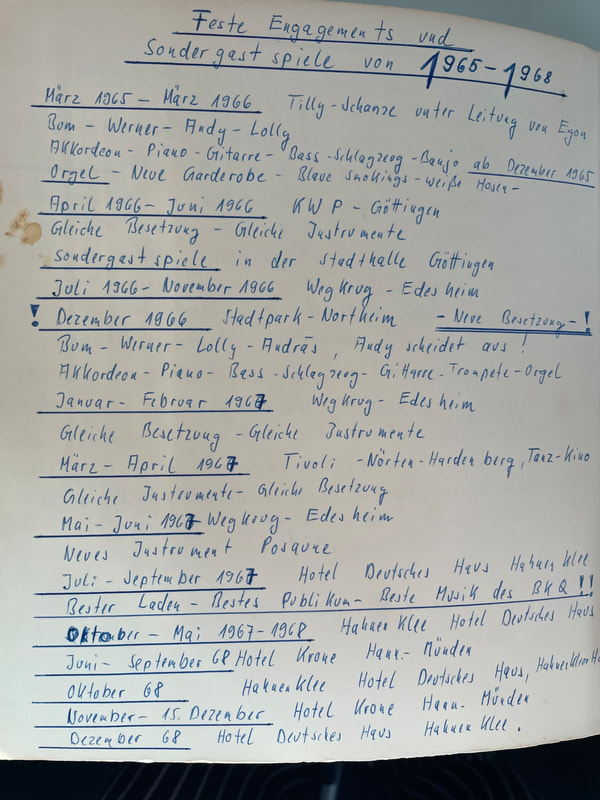 Feste Engagements und
Sondergastspiele von 1965-1968
März 1965 - März 1966 Tilly-Schanze unter Leitung von Egon
Bum - Werner - Andy - Lolly
Akkordeon - Piano - Gitarre - Bass - Schlagzeug - Banjo ab Dezember 1965
Orgel - Neue Garderobe - Blaue Smokings - weiße Hosen -
April 1966 - Juni 1966 KWP - Göttingen
Gleiche Besetzung - Gleiche Instrumente
Sondergastspiele in der Stadthalle Göttingen
Juli 1966 - November 1966 Wegkrug - Edesheim
! Dezember 1966 Stadtpark - Northeim - Neue Besetzung - !
Bum - Werner - Lolly - Andräs, Andy scheidet aus!
Akkordeon - Piano - Bass - Schlagzeug - Gitarre - Trompete - Orgel
Januar - Februar 1967 Wegkrug - Edesheim
Gleiche Besetzung - Gleiche Instrumente
März - April 1967 Tivoli - Nörten-Hardenberg, Tanz-Kino
Gleiche Instrumente - Gleiche Besetzung
Mai - Juni 1967 Wegkrug - Edesheim
Neues Instrument Posaune
Juli - September 1967 Hotel Deutsches Haus Hahnenklee
Bester Laden - Bestes Publikum - Beste Musik des BKQ!!
Oktober - Mai 1967-1968 Hahnenklee Hotel Deutsches Haus
Juni - September 68 Hotel Krone Hann.- Münden
Oktober 68 Hahnenklee Hotel Deutsches Haus,
November - 15. Dezember Hotel Krone Hann- Münden
Dezember 68 Hotel Deutsches Haus Hahnenklee.